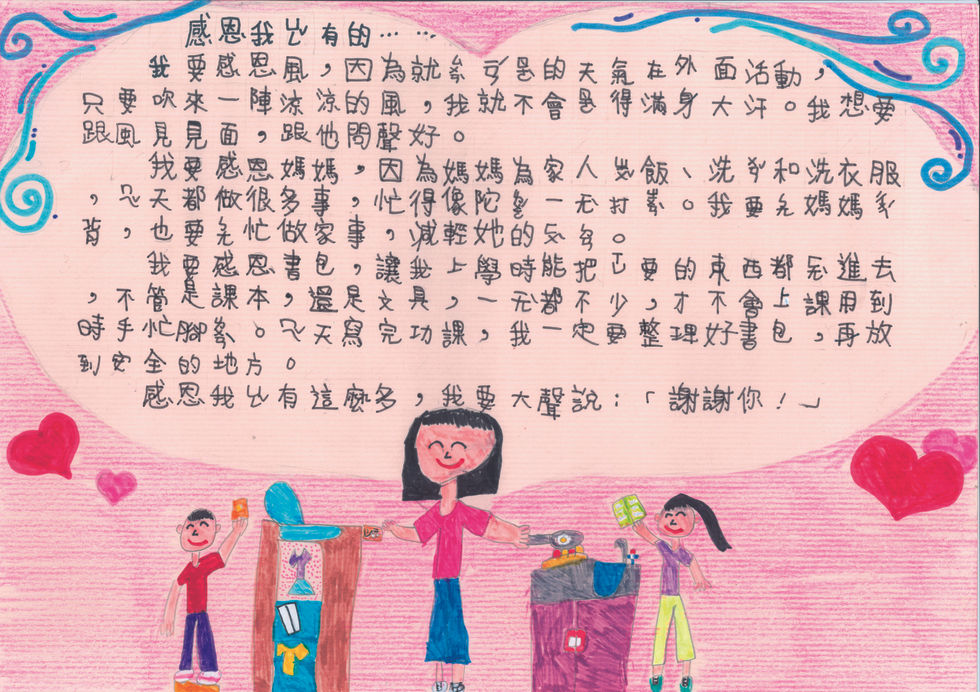 感恩我有的……
我要感恩風，因為就的天氣在外面活動，
只要吹來一陣涼涼的風，我就不會得滿身大汗。我想要
跟風見見面，跟他問聲好。
我要感恩媽媽，因為媽媽為家人飯、洗和洗衣服
，天都做很多事，忙得像陀一打。我要媽媽
背，也要忙做家事，減輕她的。
我要感恩書包，讓我上學時能把要的東西都進去
，不管是課本，還是文具，一都不少，才不會上課用到
時手忙腳。天寫完功課，我一定要整理好書包，再放
到安全的地方。
感恩我有這麼多，我要大聲說：「謝謝你！」